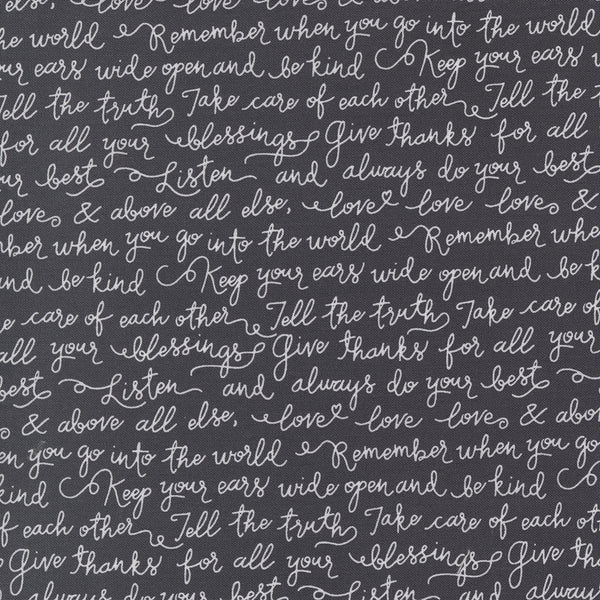 else, love love love &
he world Remember when you go into the world
ur ears wide open and be kind Keep your ears
Tell the truth Take care of each other Tell the
for all your blessings Give thanks for all
ur best Listen and always do your best
love & above all else, love love love &
mber when you go into the world Remember whe
and be kind Keep your ears wide open and be k
e care of each other Tell the truth Take care of
all your blessings Give thanks for all your
best Listen and always do your best
& above all else, love love love & abov
en you go into the world Remember when you go
kind Keep your ears wide open and be kind
f each other Tell the truth Take care of each ot
Give thanks for all your blessings Give tha
always do your best Listen and always